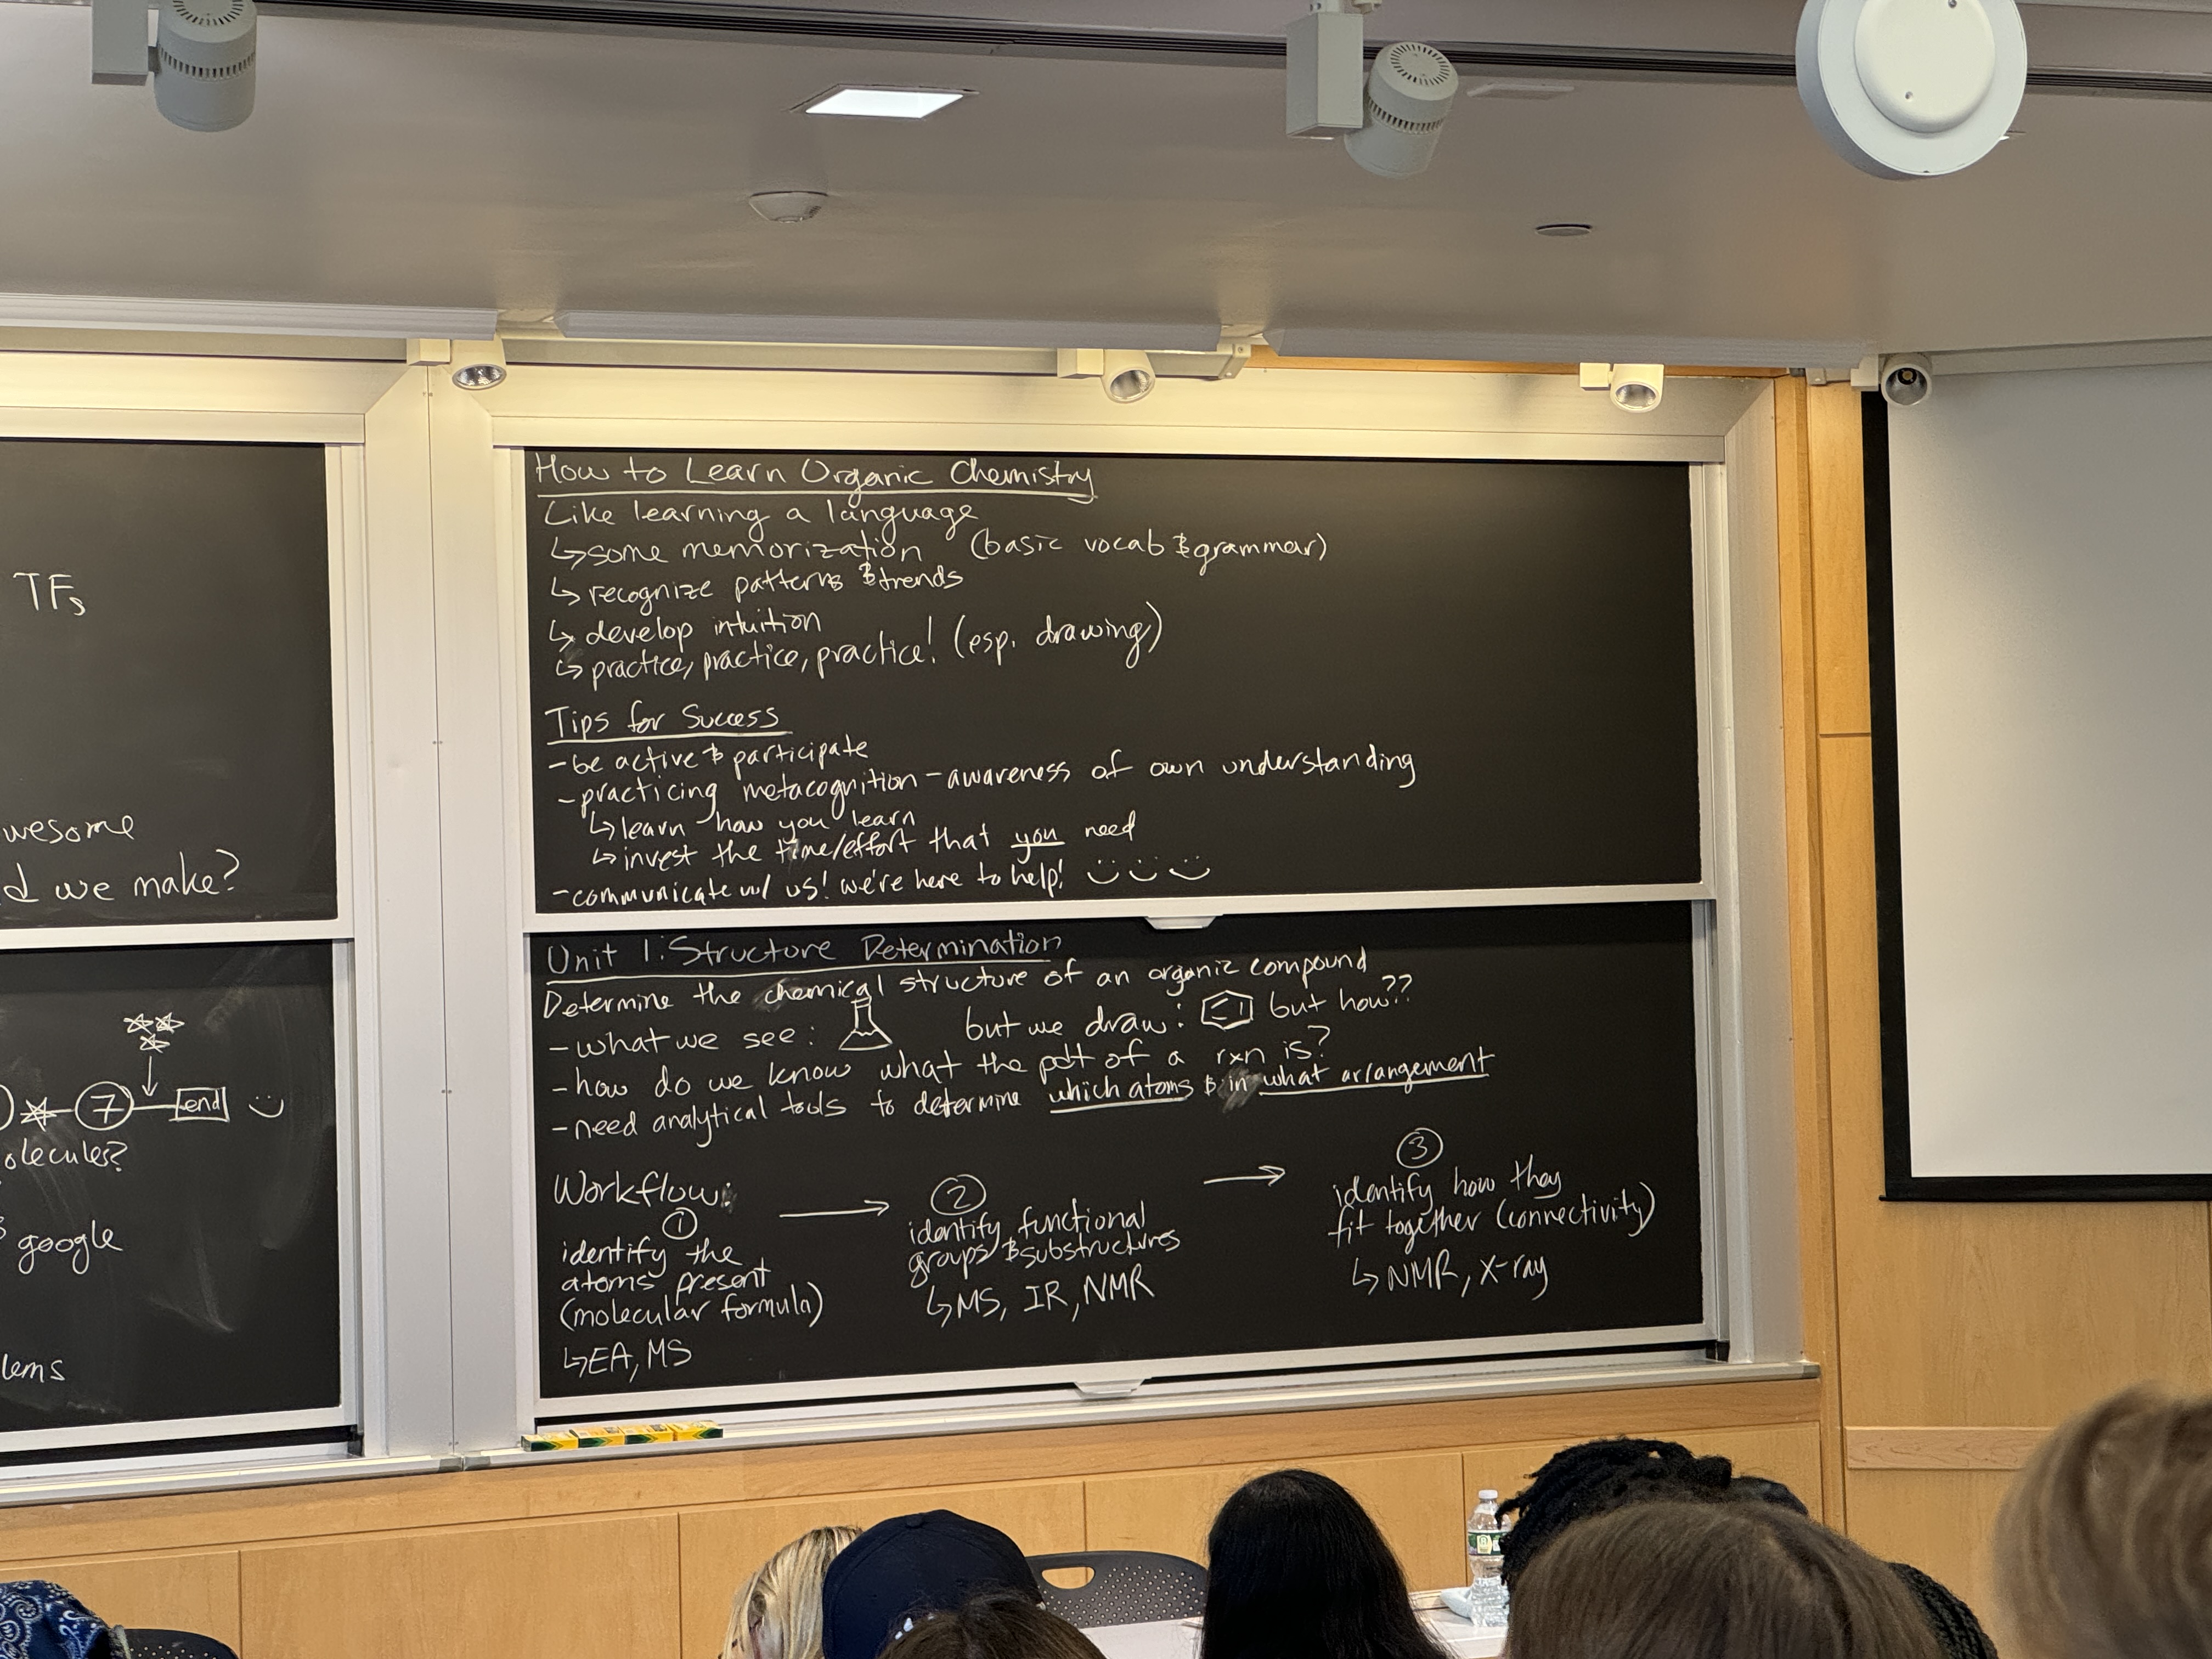 TFs
wesome
d we make?
7 end
olecules?
google
lems
How to Learn Organic Chemistry
Like learning a language
↳ some memorization (basic vocab & grammar)
↳ recognize patterns & trends
↳ develop intuition
↳ practice, practice, practice! (esp. drawing)
Tips for Success
- be active & participate
- practicing metacognition - awareness of own understanding
↳ learn how you learn
↳ invest the time/effort that you need
- communicate w/ us! we're here to help!
Unit 1: Structure Determination
Determine the chemical structure of an organic compound
- what we see: but we draw: but how??
- how do we know what the pdt of a rxn is?
- need analytical tools to determine which atoms & in what arrangement
Workflow:
①
identify the
atoms present
(molecular formula)
↳ EA, MS
②
identify functional
groups & substructures
↳ MS, IR, NMR
③
identify how they
fit together (connectivity)
↳ NMR, X-ray